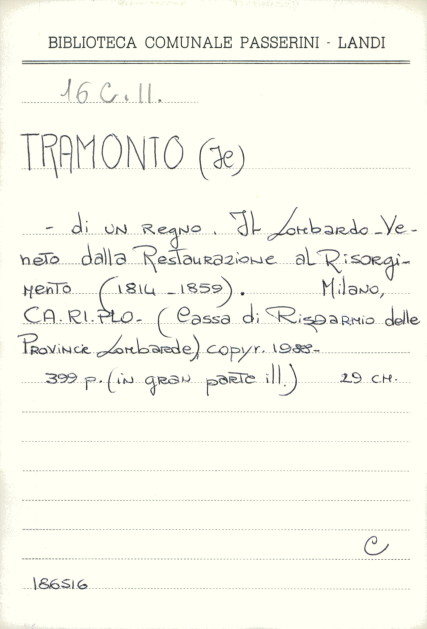 BIBLIOTECA COMUNALE PASSERINI - LANDI
16 C. II.
TRAMONTO (Je)
- di un Regno. Il Lombardo-Ve-
neto dalla Restaurazione al Risorgi-
mento (1814-1859). Milano,
CA.RI.PLO- (Cassa di Risparmio delle
Provincie Lombarde) copyr. 1988-
399 p. (in gran parte ill.) 29 cm.
C
186516